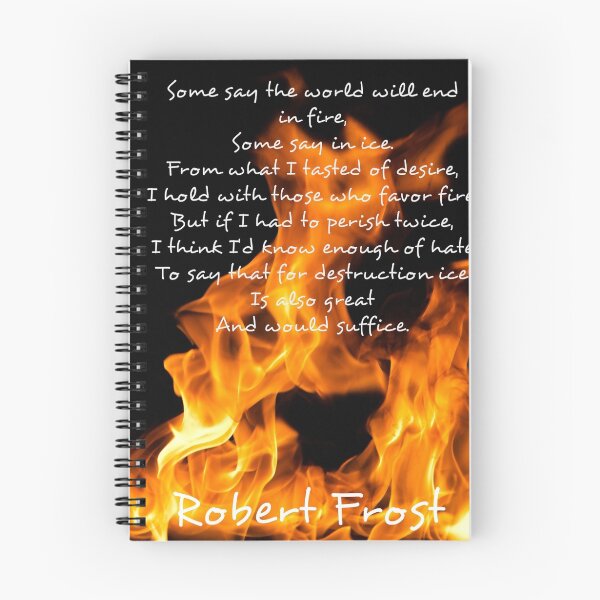 Some say the world will end
in fire,
Some say in ice.
From what I tasted of desire,
I hold with those who favor fire
But if I had to perish twice,
I think I'd know enough of hate
To say that for destruction ice
Is also great
And would suffice.
Robert Frost